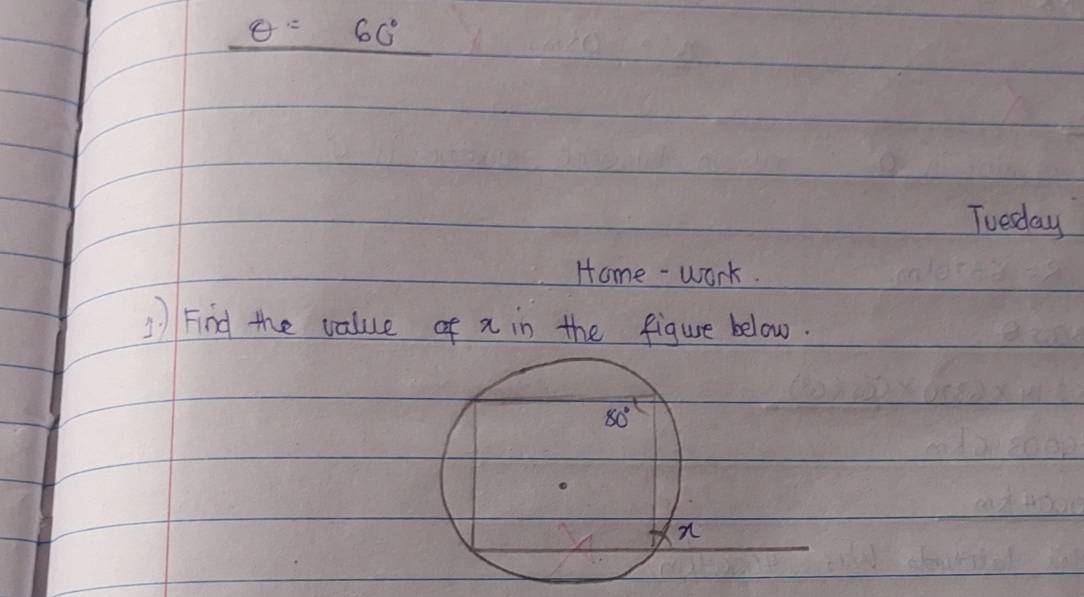 θ = 60°
Tuesday
Home - work.
1.) Find the value of x in the figure below.
80°
x